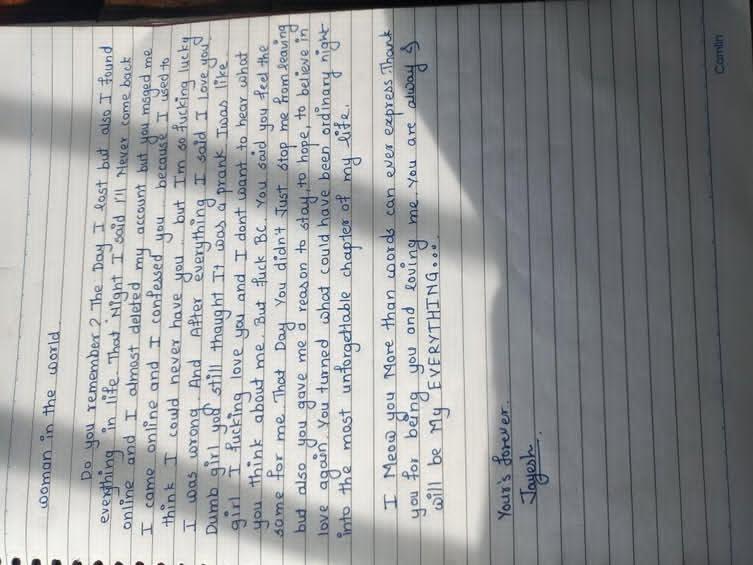 woman in the world
Do you remember? The Day I lost but also I found
everything in life. That Night I said I'll Never come back
online and I almost deleted my account but you msged me
I came online and I confessed you because I used to
think I could never have you but I'm so fucking lucky
I was wrong And After everything I said I love you
Dumb girl you still thaught It was a prank Iwas like
girl I fucking love you and I dont want to hear what
you think about me. But fuck BC. You said you feel the
same for me. That Day You didn't Just stop me from leaving
but also you gave me a reason to stay, to hope, to believe in
love again. You turned what could have been ordinary night
into the most unforgettable chapter of my life.
I Meow you More than words can ever express. Thank
you for being you and loving me. You are alway &
will be My EVERYTHING...
Your's forever.
Jayesh
Camlin